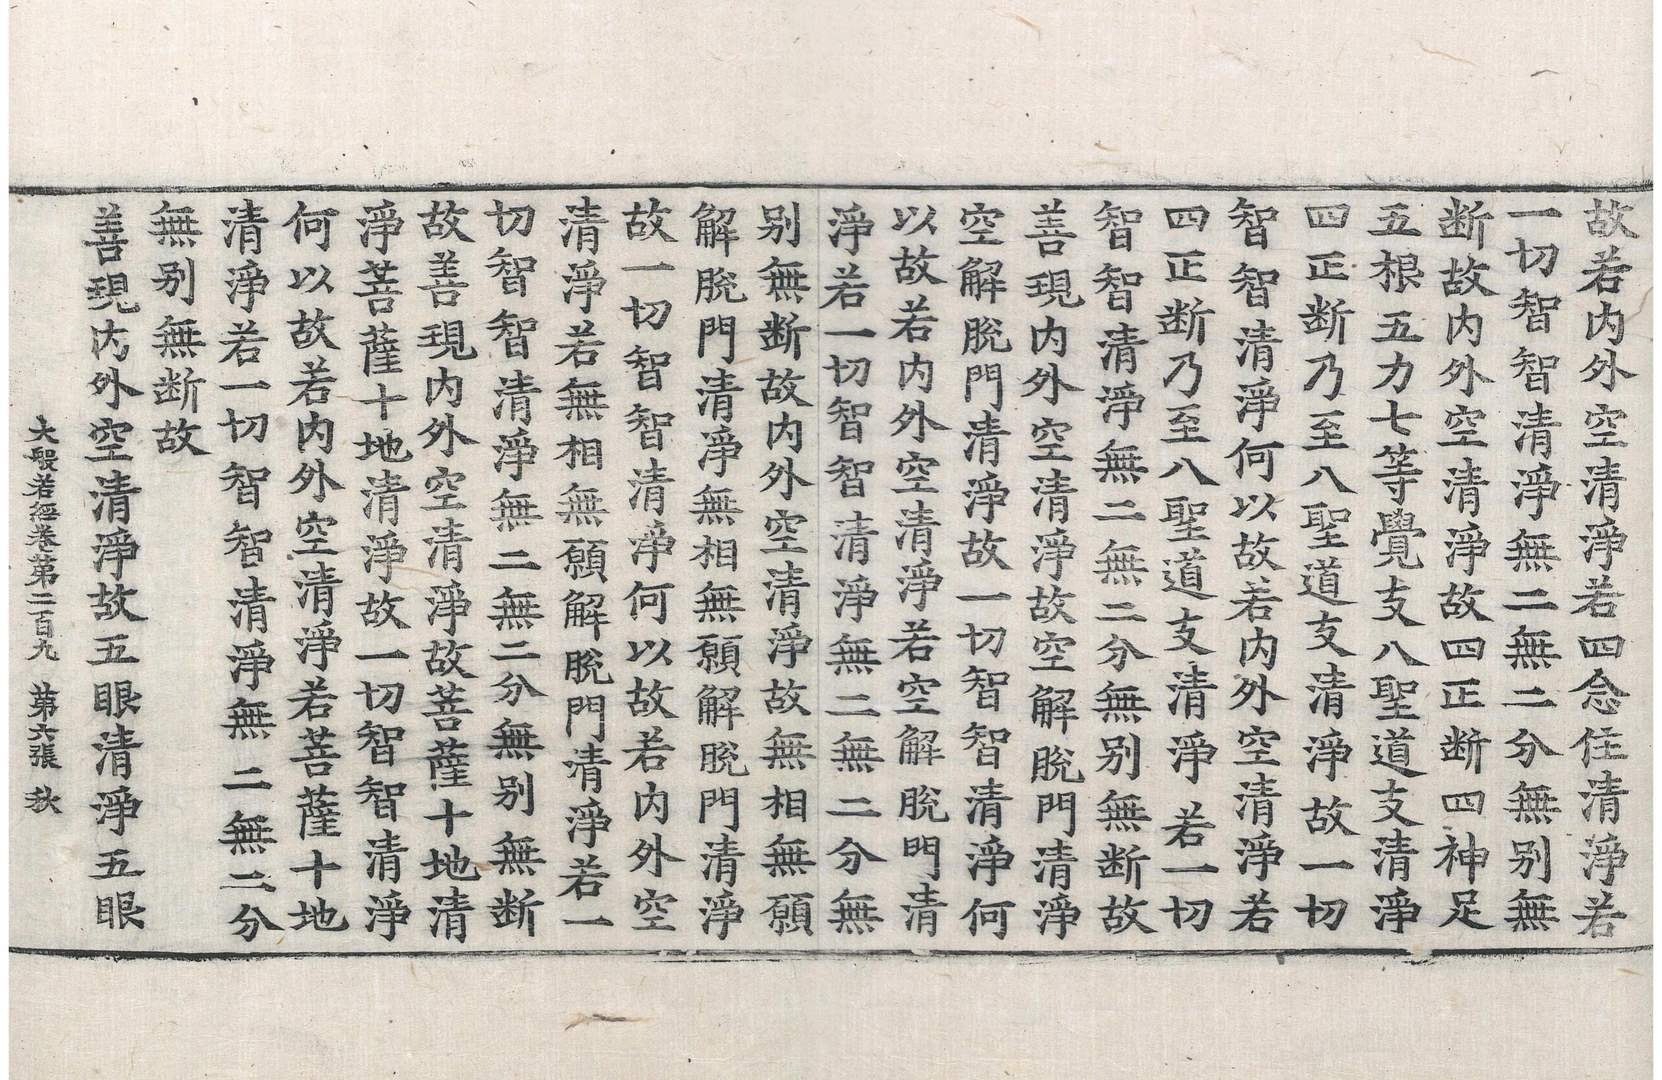 故若内外空清淨若四念住清淨若
一切智智清淨無二無二分無别無
断故内外空清淨故四正断四神足
五根五力七等覺支八聖道支清淨
四正断乃至八聖道支清淨故一切
智智清淨何以故若内外空清淨若
四正断乃至八聖道支清淨若一切
智智清淨無二無二分無别無断故
善現内外空清淨故空解脫門清淨
空解脫門清淨故一切智智清淨何
以故若内外空清淨若空解脫門清
淨若一切智智清淨無二無二分無
别無断故内外空清淨故無相無願
解脫門清淨無相無願解脫門清淨
故一切智智清淨何以故若内外空
清淨若無相無願解脫門清淨若一
切智智清淨無二無二分無别無断
故善現内外空清淨故菩薩十地清
淨菩薩十地清淨故一切智智清淨
何以故若内外空清淨若菩薩十地
清淨若一切智智清淨無二無二分
無别無断故
善現内外空清淨故五眼清淨五眼
大般若經卷第二百九 第六張 秋